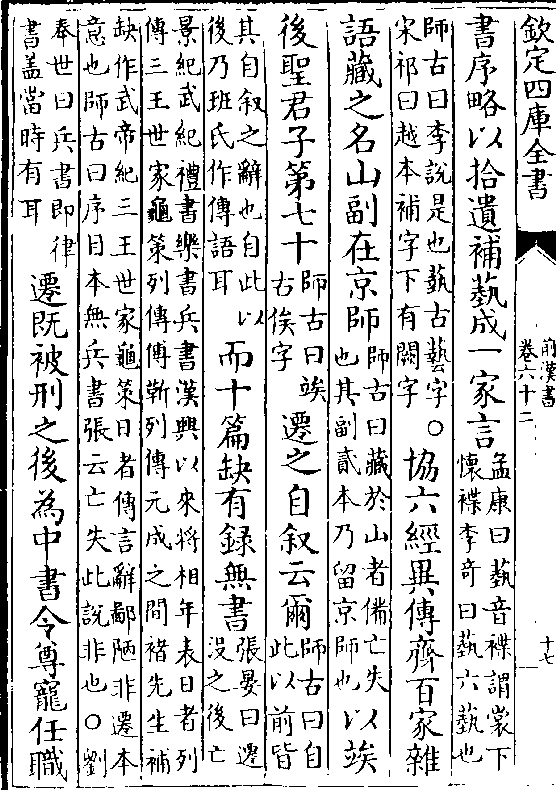 欽定四庫全書
前漢書
卷六十二
十七
書序略以拾遺補蓺成一家言
孟康曰蓺音褋謂裳下
懷褋李奇曰蓺六蓺也
師古曰李說是也蓺古藝字〇
宋祁曰越本補字下有闕字
協六經異傳齊百家雜
語藏之名山副在京師
師古曰藏於山者備亡失
也其副貳本乃留京師也
以竢
後聖君子第七十
師古曰竢
古俟字
遷之自叙云爾
師古曰自
此以前皆
其自叙之辭也自此以
後乃班氏作傳語耳
而十篇缺有録無書
張晏曰遷
没之後亡
景紀武紀禮書樂書兵書漢興以來將相年表日者列
傳三王世家龜策列傳傅靳列傳元成之間褚先生補
缺作武帝紀三王世家龜策日者傳言辭鄙陋非遷本
意也師古曰序目本無兵書張云亡失此說非也〇劉
奉世曰兵書即律
書盖當時有耳
遷既被刑之後為中書令尊寵任職